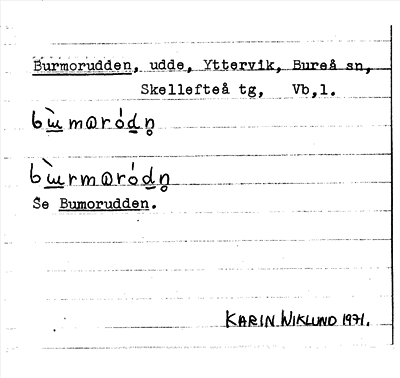 Burmorudden, udde, Yttervik, Bureå sn,
Skellefteå tg, Vb,l.
bɯ̀mɷróḍn̥
bɯ̀rmɷróḍn̥
Se Bumorudden.
KARIN WIKLUND 1971.